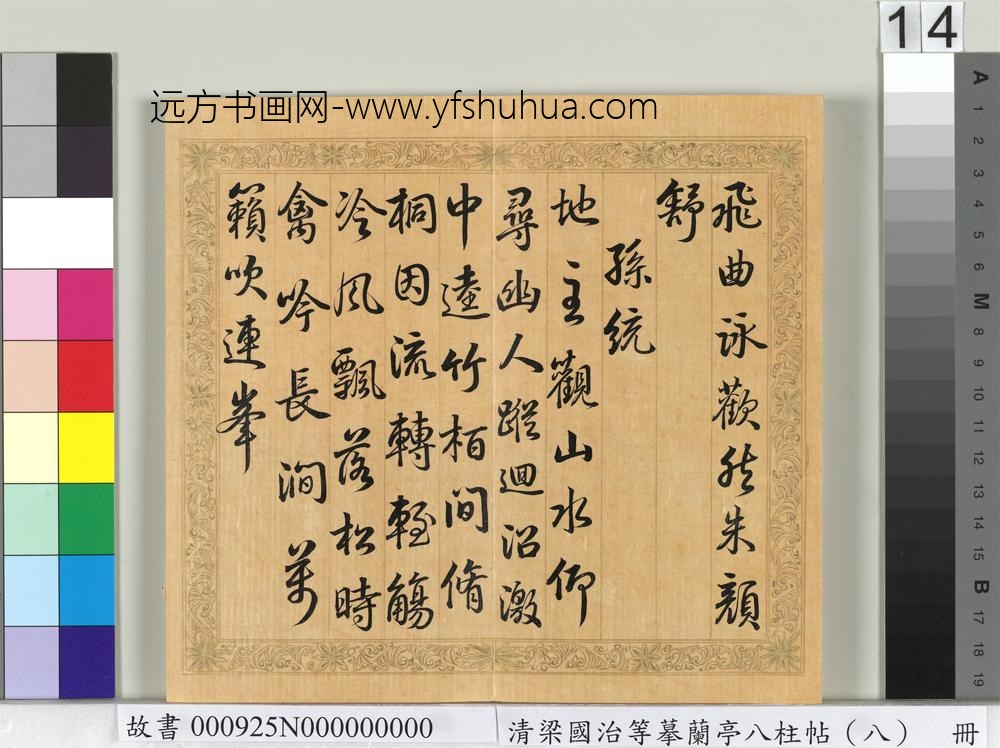 14
远方书画网-www.yfshuhua.com
飛曲詠歡然朱顏
舒
孫統
地主觀山水仰
尋幽人蹤迴沼激
中逵竹柏間脩
桐因流轉輕觴
冷風飄落松時
禽吟長澗萬
籟吹連峯
A 1 2 3 4 5 6 M 8 9 10 11 12 13 14 15 B 17 18 19
故書 000925N000000000
清梁國治等摹蘭亭八柱帖（八） 冊